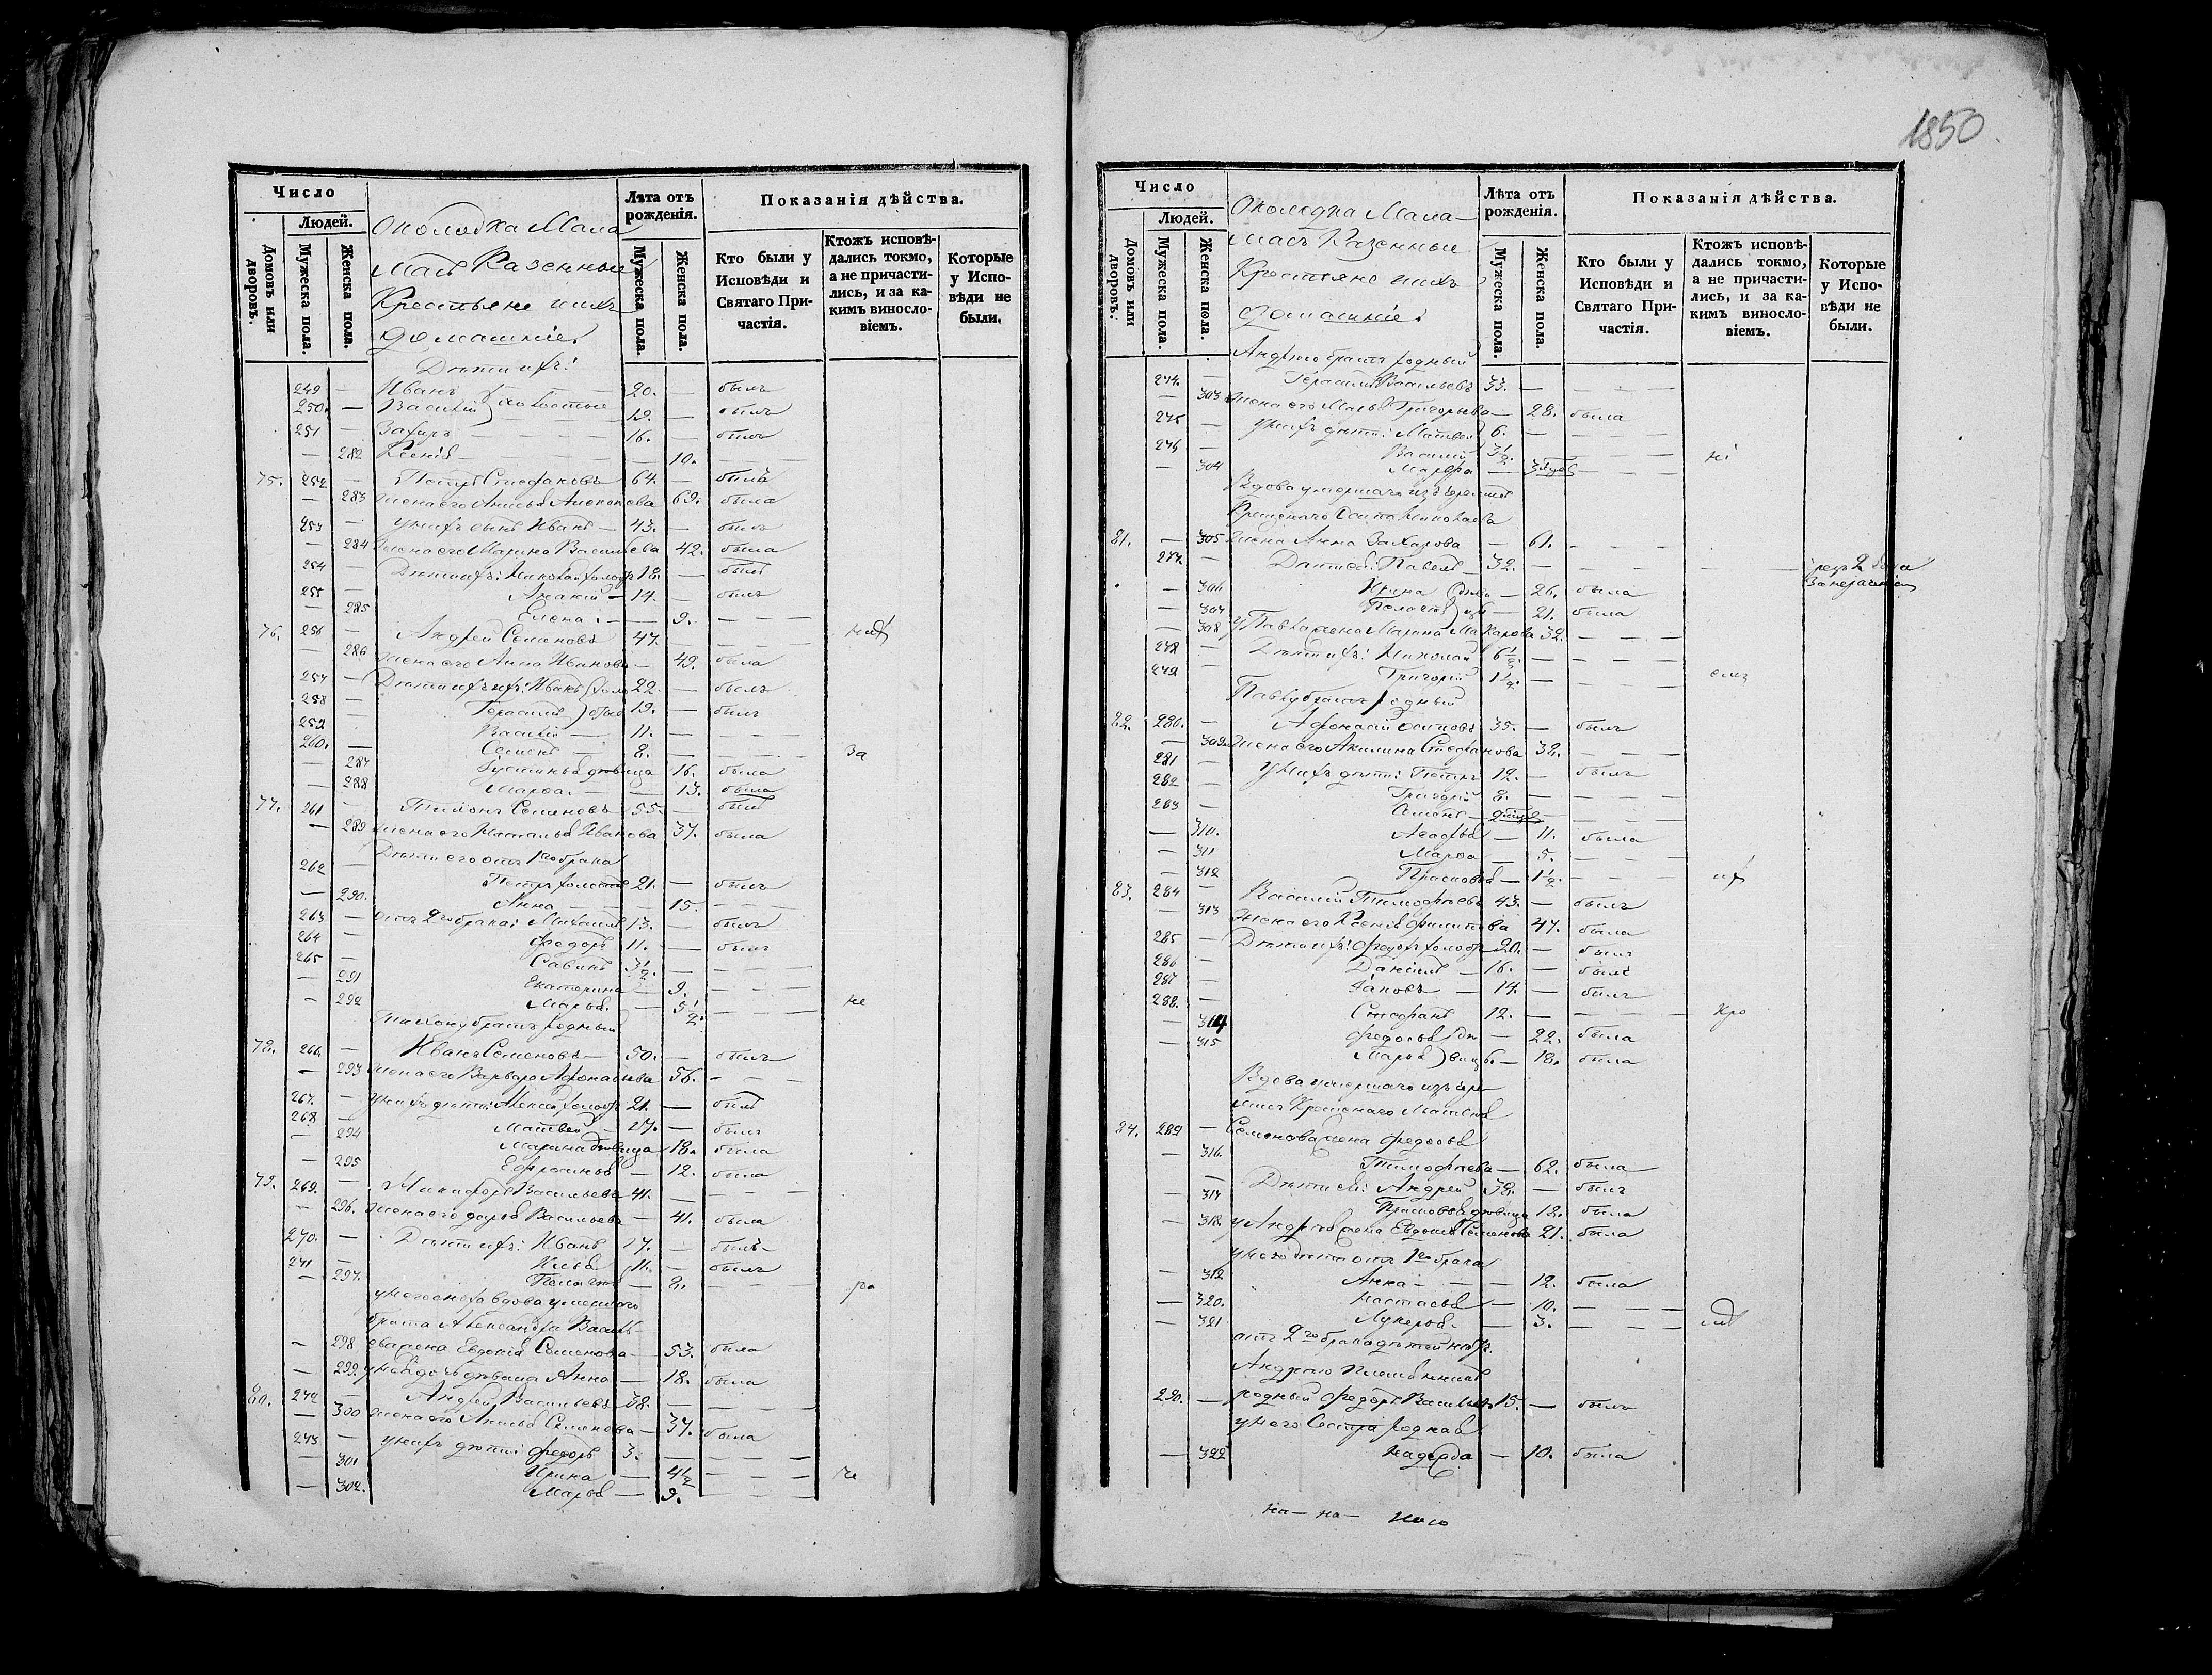 1850
Число
Людей.
Домовъ или дворовъ.
Мужеска пола.
Женска пола.
Околодка Мала
масъ Казенные
Крестьяне ихъ
домашніе.
Лѣта отъ рожденія.
Мужеска пола.
Женска пола.
Показанія дѣйства.
Кто были у Исповѣди и Святаго Причастія.
Ктожъ исповѣдались токмо, а не причастились, и за какимъ винословіемъ.
Которые у Исповѣди не были.
Дѣти ихъ:
249 — Иванъ 20. — былъ
250. — Василій холостые 19. — былъ
251 — Захаръ 16. — былъ
— 282 Ксенія — 10. — —
75. 252 — Петръ Стефановъ 64. — былъ
— 283 жена его Анисья Алексѣева 69. была
253 — у нихъ сынъ Иванъ — 43. — былъ
— 284 жена его Марина Васильева 42. была
254 — Дѣти ихъ: Николай холост 18. — былъ
255 — Ананій — 14. — былъ
— 285 Елена — 9. — — —
76. 256 — Андрей Семеновъ 47. — — —
— 286 жена его Анна Иванова — 49. была
257 — Дѣти ихъ: Иванъ 22. — былъ
258 — Герасимъ 19. — былъ
259 — Василій — 11. — — —
260. — Семенъ — 8. — — — за
— 287 Устинья дѣвица 16. была
— 288 Марѳа — 13. была
77. 261 — Тихонъ Семеновъ 55. — былъ
— 289 жена его Наталья Иванова 37. была
Дѣти его отъ 1го брака
262 — Петръ холостъ 21. — былъ
— 290. Анна — 15. — — —
263 — отъ 2го брака: Михаилъ 13. — былъ
264 — Федоръ 11. — былъ
265 — Савинъ 3½. — — —
— 291 Екатерина — 9. — — —
— 292 Марья — 5½. — — — не
Тихону братъ родный
78. 266 — Иванъ Семеновъ — 50. — былъ
— 293 жена его Варвара Афонасьева 56. — — —
267. — у нихъ дѣти: Алексѣй холост 21. — былъ
268 — Матвей — 17. — былъ
— 294 Марина дѣвица 18. была
— 295 Ефросинья — 12. была
79. 269. — Никифоръ Васильевъ 41. — — —
— 296. жена его Дарья Васильева — 41. была
270. — Дѣти ихъ: Иванъ 17. — былъ
271 — Илья 11. — былъ
— 297. Пелагея — 8. — — ро
у него сноха вдова умершаго
брата Александра Василь—
— 298 ева жена Евдокія Семенова — 53. была
— 299. у ней дочь дѣвица Анна — 18. была
80. 272 — Андрей Васильевъ 38. — — —
— 300 жена его Анисья Семенова — 37. была
273 — у нихъ дѣти: Федоръ 3. — — —
— 301 Ирина — 4½ — — — че
— 302. Марья — 9. — — —
Число
Людей.
Домовъ или дворовъ.
Мужеска пола.
Женска пола.
Околодка Мала—
масъ Казенные
Крестьяне ихъ
домашніе.
Лѣта отъ рожденія.
Мужеска пола.
Женска пола.
Показанія дѣйства.
Кто были у Исповѣди и Святаго Причастія.
Ктожъ исповѣдались токмо, а не причастились, и за какимъ винословіемъ.
Которые у Исповѣди не были.
Андрею братъ родный
274. — Герасимъ Васильевъ 33. — — — —
— 303 жена его Григорьева — 28. была
275 — у нихъ дѣти: Матвей 6. — — — —
276 — Василій 3½. — — — — ні
— 304 Марфа —
Вдова умершаго
Крещенаго Осипа Николаева
81. — 305 жена Анна Захарова — 61. — — —
277. — Павелъ — 32. — — — —
— 306 Ирина — 26. была
— 307 Пелагея — 21. была
— 308 у Павла жена Марина Макарова 32. — — —
278 — Дѣти ихъ: Николай 6½. — — — —
279 — Григорій 1½. — — — —
Павлу братъ родный
82. 280. — Афонасій Осиповъ 35. — былъ
— 309. жена его Акилина Стефанова 38. — — —
281 — у нихъ дѣти: Петръ 12. — былъ
282 — Григорій 8. — — — —
283 — Семенъ — — — —
— 310. — 11. была
— 311 Марѳа — 5. — — —
— 312 Прасковья — 1½. — — — их
83. 284 — Василій Тимофѣевъ 43. — былъ
— 313 жена его Ксенія Филипова 47. была
285 — Дѣти ихъ: Федоръ холост 20. — былъ
286 — Даніилъ — 16. — былъ
287 — Іаковъ — 14. — былъ
288. — Стефанъ 12. — — — — кро
— 314 Федосья — 22. была
— 315 Марья — 18. была
Вдова умершаго изъ чере—
мисъ Крещенаго Матвея
84. 289 — Семенова жена Федосья
— 316. Тимофѣева — 62. была
— Дѣти ея: Андрей 38. — былъ
317 Прасковья дѣвица 18. была
— 318 у Андрея жена Евдокія Семенова 21. была
у него дѣти отъ 1го брака
— 319 Анна — — 12. была
— 320. Настасья — 10. — — —
— 321 Лукерья — 3. — — —
отъ 2го брака дѣтей нѣтъ.
Андрею племянникъ
290. — родный Федоръ Васильевъ 15. — былъ
у него Сестра родная
— 322 Надежда — 10. была
на — на —